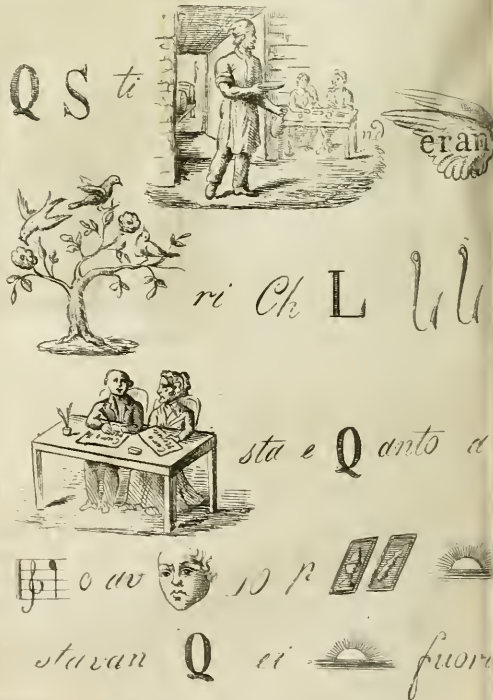 Q S ti n eran
ri Ch L
sta e Q anto a
o av 10
stavan Q ei fuori